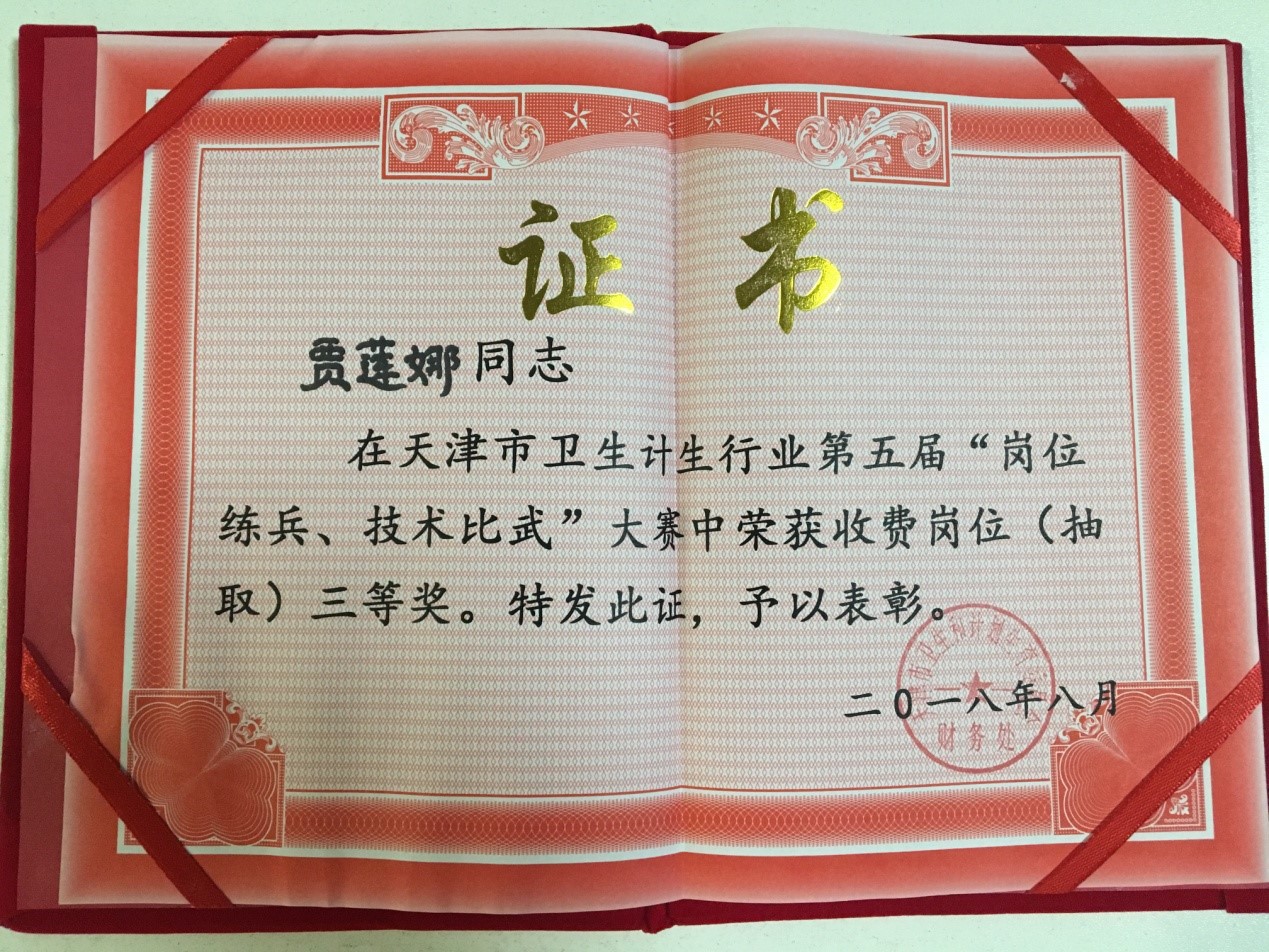 证书
贾莲娜同志
在天津市卫生计生行业第五届“岗位
练兵、技术比武”大赛中荣获收费岗位（抽
取）三等奖。特发此证，予以表彰。
二0一八年八月
财务处